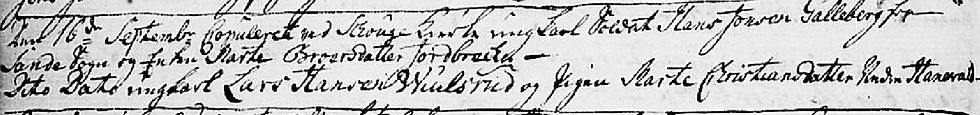 den 16de Septembr Copuleret ved Schouge Kirke ungkarl Soldat Hans Jonsen Galleberg fra
Sande Sogn og Enken Marte Broersdatter Jordbreche
Dito Dato ungkarl Lars Hansen Wiulsrud og Pigen Marte Christiansdatter Nedre Hanevold